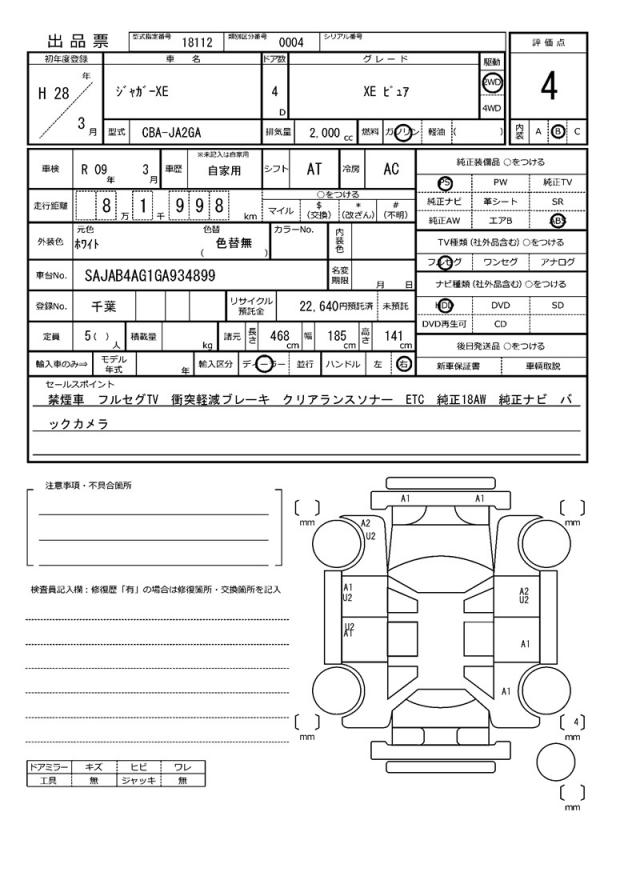 出品票 型式指定番号 18112 類別区分番号 0004 シリアル番号
初年度登録 車名 ドア数 グレード 駆動 評価点
H 28 年 3 月 ジャガーXE 4 D XE ピュア 2WD 4WD 4
型式 CBA-JA2GA 排気量 2,000 cc 燃料 ガソリン 軽油 ( ) 内装 A B C
車検 R 09 年 3 月 車歴 ※未記入は自家用 自家用 シフト AT 冷房 AC 純正装備品 ○をつける
PS PW 純正TV
走行距離 8 万 1 千 9 9 8 km ○をつける 純正ナビ 革シート SR
マイル $ (交換) * (改ざん) # (不明) 純正AW エアB ABS
外装色 元色 ホワイト 色替 ( 色替無 ) カラーNo. 内装色 TV種類 (社外品含む) ○をつける
フルセグ ワンセグ アナログ
車台No. SAJAB4AG1GA934899 名変期限 月 日 ナビ種類 (社外品含む) ○をつける
登録No. 千葉 リサイクル預託金 22,640円預託済 未預託 HDD DVD SD
DVD再生可 CD
定員 5 ( ) 人 積載量 kg 諸元 長さ 468 cm 幅 185 cm 高さ 141 cm 後日発送品 ○をつける
輸入車のみ⇒ モデル年式 年 輸入区分 ディーラー 並行 ハンドル 左 右 新車保証書 車輌取説
セールスポイント
禁煙車 フルセグTV 衝突軽減ブレーキ クリアランスソナー ETC 純正18AW 純正ナビ バ
ックカメラ
注意事項・不具合箇所
検査員記入欄：修復歴「有」の場合は修復箇所・交換箇所を記入
ドアミラー キズ ヒビ ワレ
工具 無 ジャッキ 無
A1 A1
[ ] mm [ ] mm
A2
U2
A1
U2
A2
U2
U2
A1
A1
A1
[ ] mm [ 4 ] mm
[ ] mm